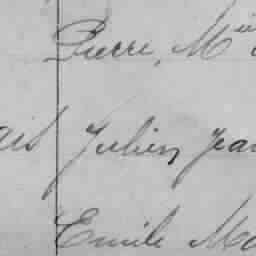 Pierre, M
Julien Jea
Emile Ma